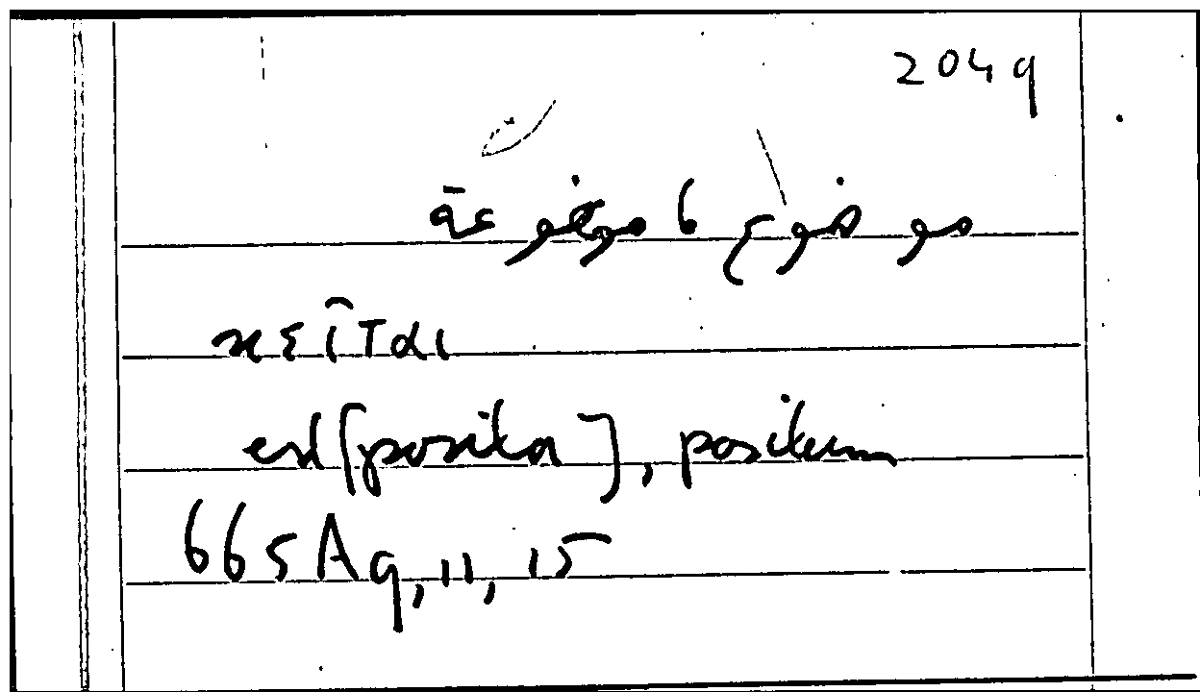 2049
موضوع 6 موضوعة
κεῖται
est [posita], positum
665A9, 11, 15